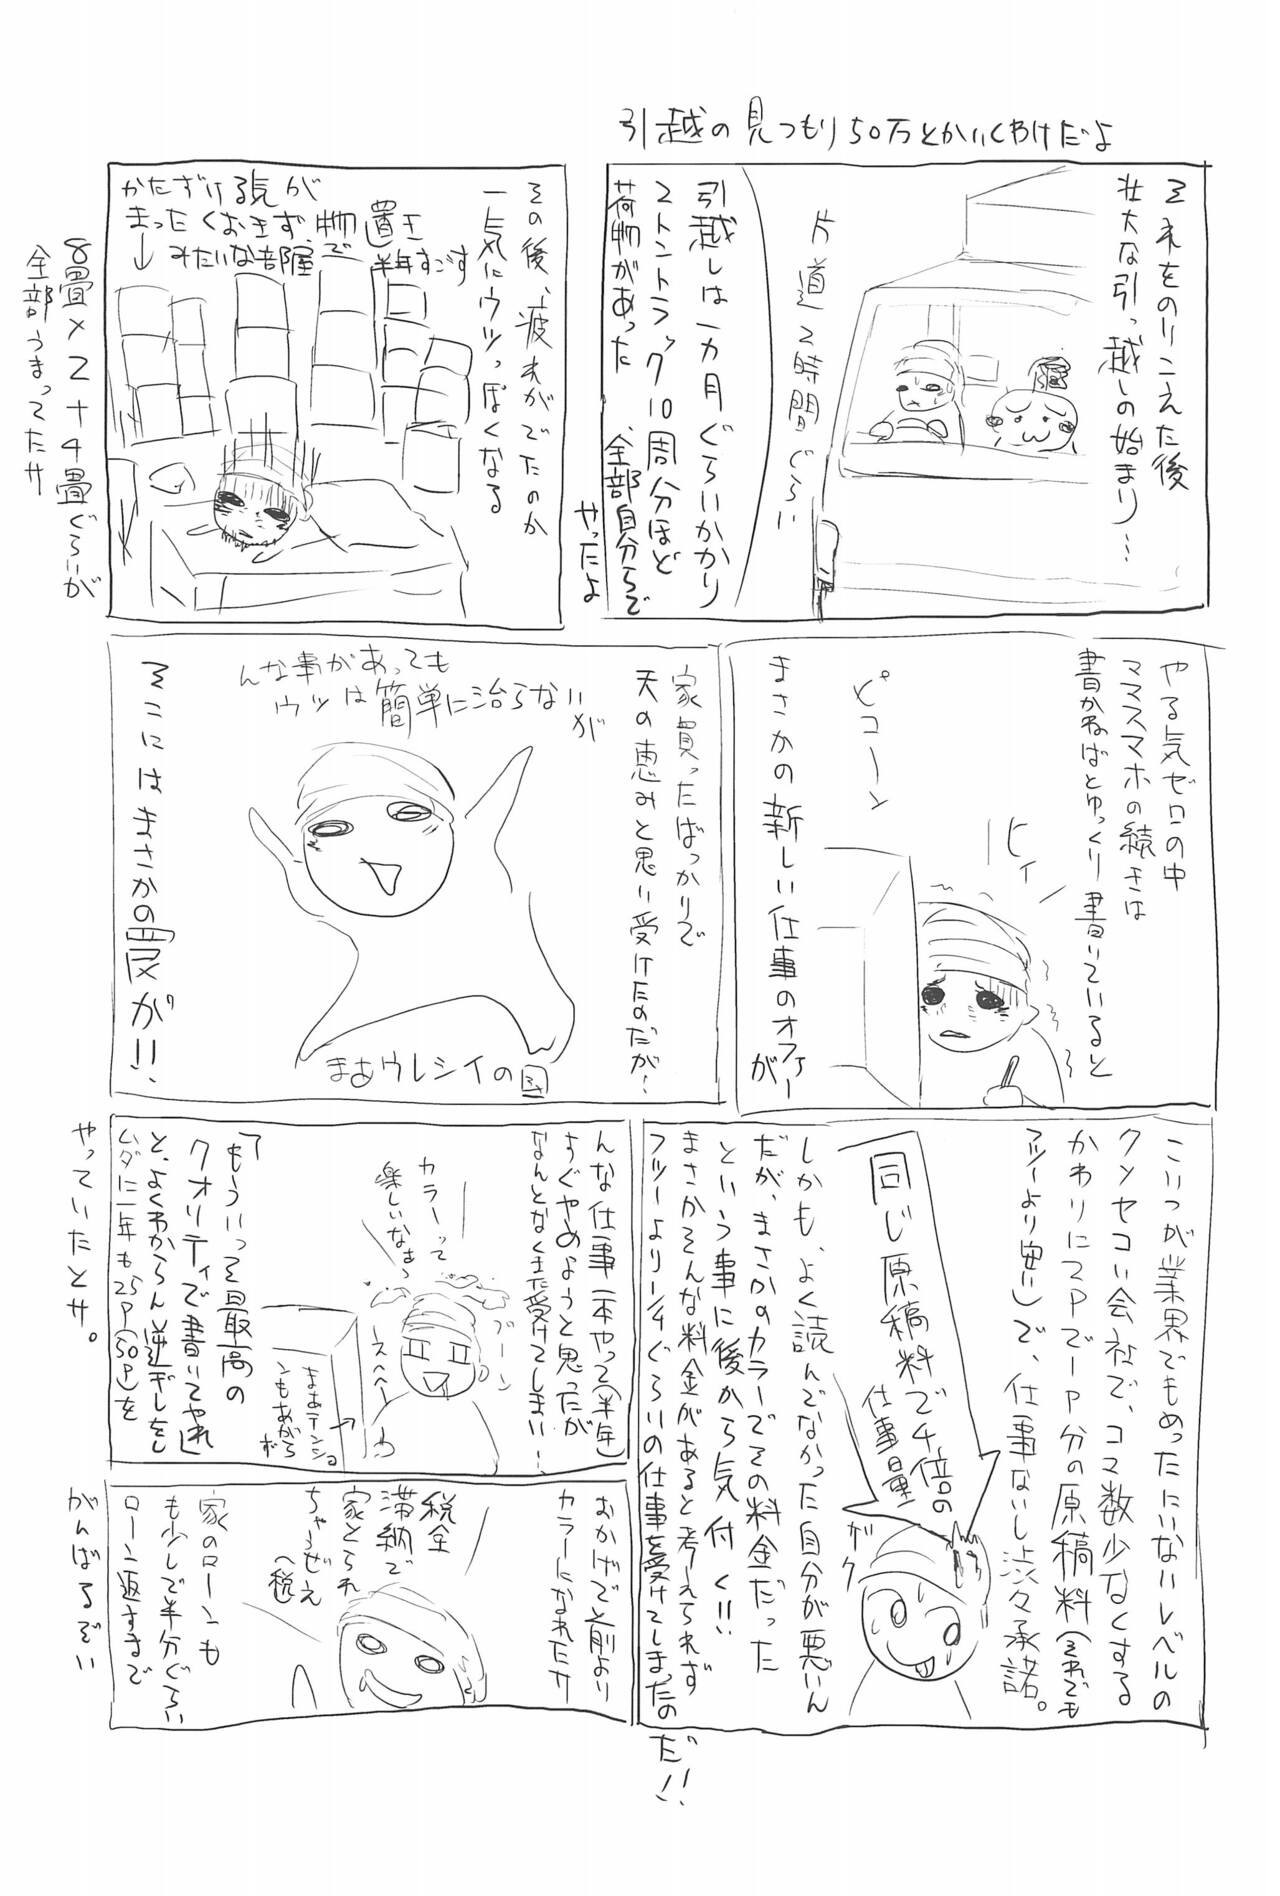 引越の見つもり50万とかいくわけだよ
それをのりこえた後
壮大な引っ越しの始まり…
片道2時間ぐらい
引越しは一カ月ぐらいかかり
2トントラック10周分ほど
荷物があった、全部自分らで
やったよ
その後、疲れがでたのか
一気にウツっぽくなる
かたずける気が
まったくおきず、物置き
みたいな部屋で半年すごす
8畳×2+4畳ぐらいが
全部うまってたサ
やる気ゼロの中
ママスマホの続きは
書かねばとゆっくり書いていると
ヒィー
ピコーン
まさかの新しい仕事のオファーが
家買ったばっかりで
天の恵みと思い受けたのだが…
んな事があっても
ウツは簡単に治らないが
まあウレシイの図
そこにはまさかの罠が!!
こいつが業界でもめったにないレベルの
クソセコい会社で、コマ数少なくする
かわりに2Pで1P分の原稿料(それでも
フツーより安い)で、仕事ないし渋々承諾。
同じ原稿料で4倍の
仕事量
ガク
しかも、よく読んでなかった自分が悪いん
だが、まさかのカラーでその料金だった
という事に後から気付く!!
まさかそんな料金があると考えられず
フツーより1/4ぐらいの仕事を受けてしまったの
だ!!
んな仕事一本やって(半年)
すぐやめようと思ったが
なんとなくまた受けてしまい…
カラーって
楽しいなぁ〜
ブーン
エヘヘー
まあテンショ
ンもあがら

「もういっそ最高の
クオリティで書いてやれ」
と、よくわからん逆ギレをし
ムダに一年も25P(50P)を
やっていたとサ。
おかげで前より
カラーになれたサ
税金
滞納で
家とられ
ちゃうぜえ
(税)
家のローンも
も少しで半分ぐらい
ローン返すまで
がんばるぞい